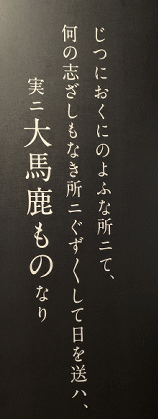 じつにおくにのよふな所ニて、
何の志ざしもなき所ニぐず〱して日を送ハ、
実ニ大馬鹿ものなり